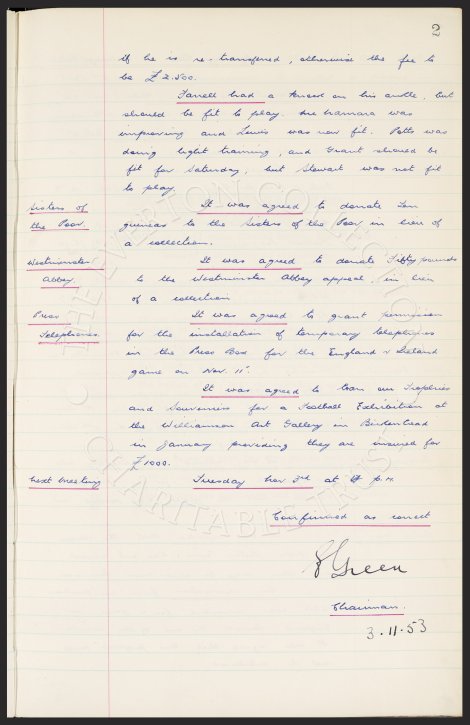 2
if he is re-transferred, otherwise the fee to
be £2.500.
Farrell had a knock on his ankle, but
should be fit to play. McNamara was
improving and Lewis was now fit. Potts was
doing light training, and Grant should be
fit for Saturday, but Stewart was not fit
to play.
Sisters of
the Poor.
It was agreed to donate Ten
guineas to the Sisters of the Poor, in lieu of
a collection.
Westminster
Abbey.
It was agreed to donate Fifty pounds
to the Westminster Abbey appeal, in lieu
of a collection
Press
Telephones.
It was agreed to grant permission
for the installation of temporary telephones
in the Press Box for the England v Ireland
game on Nov. 11th.
It was agreed to loan our Trophies
and Souvenirs for a Football Exhibition at
the Williamson Art Gallery in Birkenhead
in January providing they are insured for
£1000.
Next Meeting
Tuesday Nov 3rd at 4 p.m.
Confirmed as correct
Green
Chairman.
3.11.53
© THE EVERTON COLLECTION
CHARITABLE TRUST